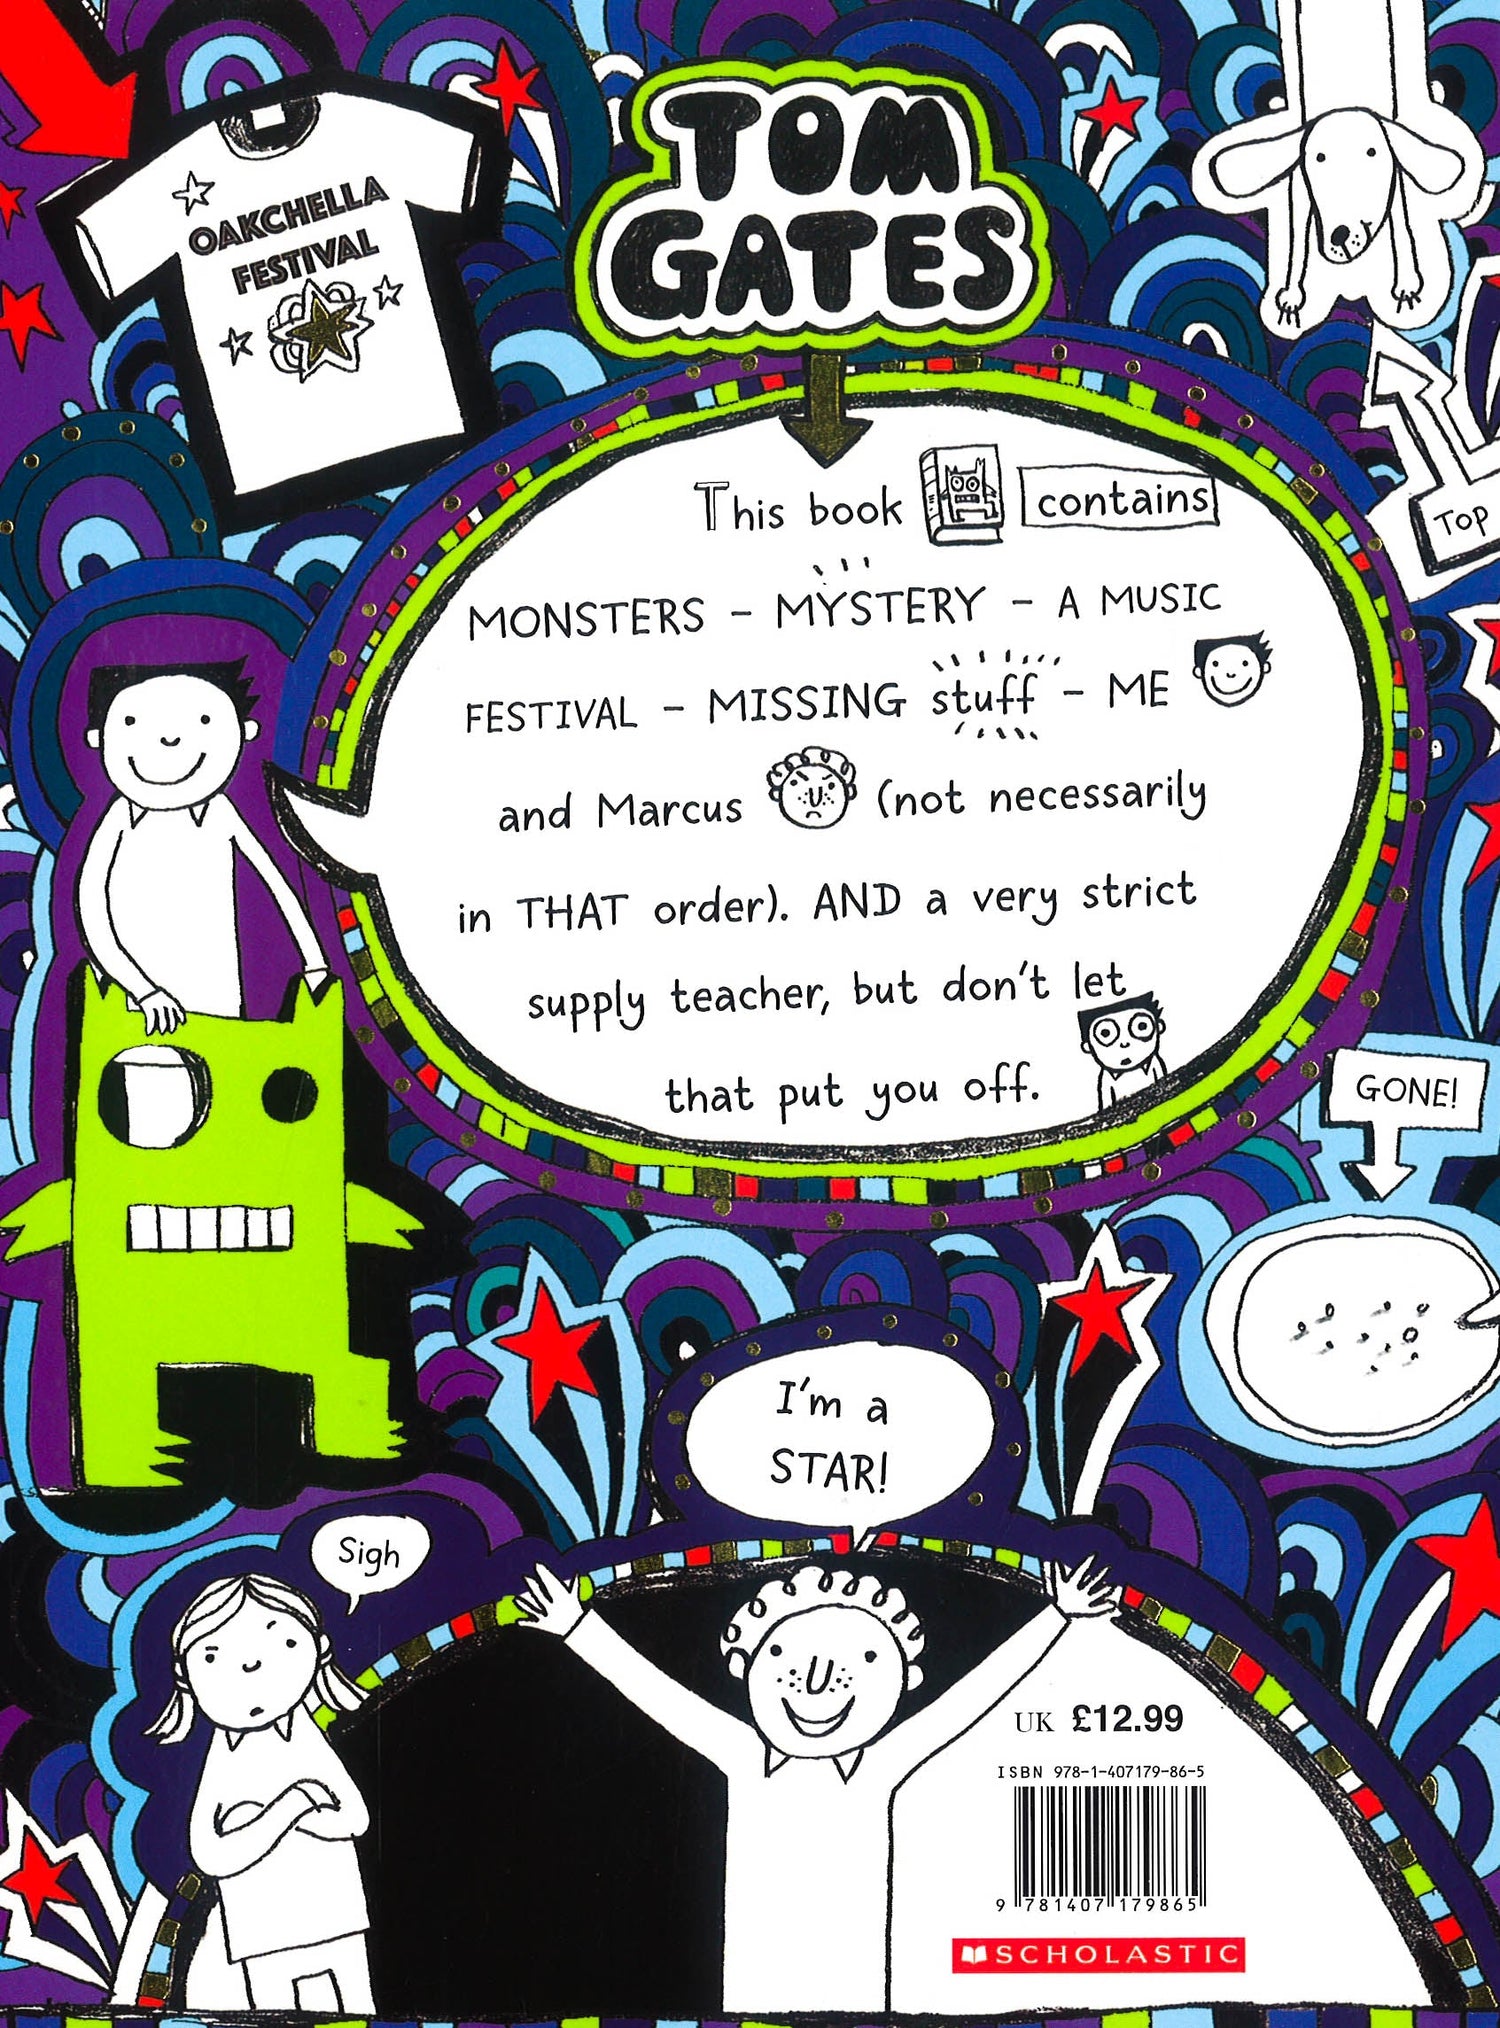 TOM
GATES
OAKCHELLA
FESTIVAL
This book contains
MONSTERS – MYSTERY – A MUSIC
FESTIVAL – MISSING stuff – ME
and Marcus (not necessarily
in THAT order). AND a very strict
supply teacher, but don't let
that put you off.
TOP
GONE!
I'm a
STAR!
Sigh
UK £12.99
ISBN 978-1-407179-86-5
9 781407 179865
SCHOLASTIC